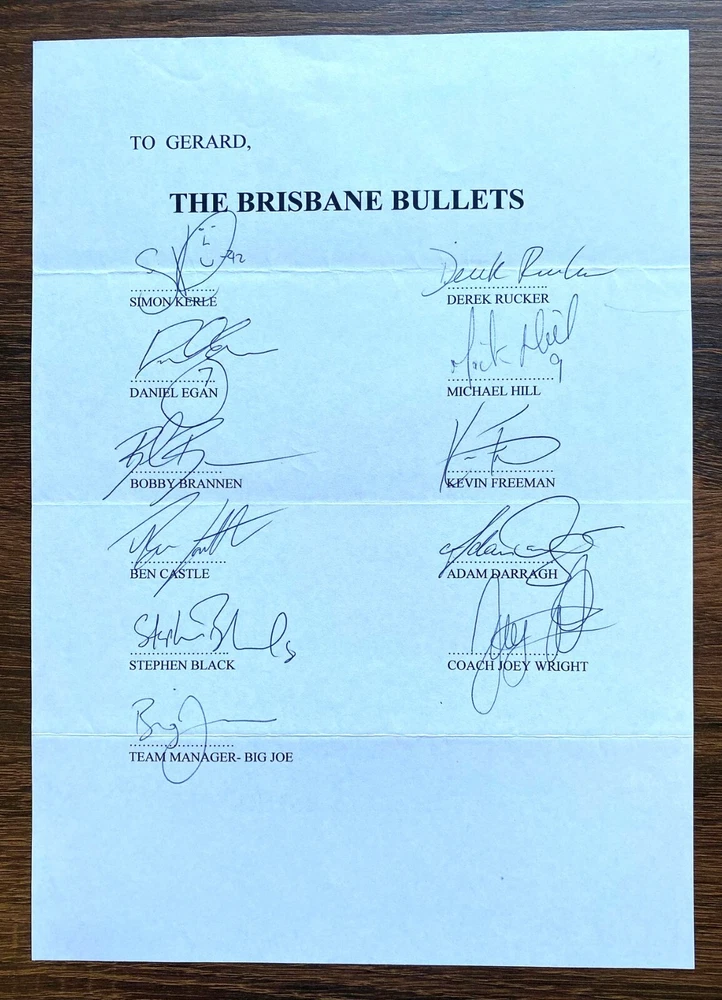 TO GERARD,
THE BRISBANE BULLETS
42
SIMON KERLE
Derek Rucker
DEREK RUCKER
7
DANIEL EGAN
Mick Hill
9
MICHAEL HILL
BOBBY BRANNEN
KEVIN FREEMAN
BEN CASTLE
ADAM DARRAGH
Stephen Black
STEPHEN BLACK
COACH JOEY WRIGHT
Big J
TEAM MANAGER- BIG JOE